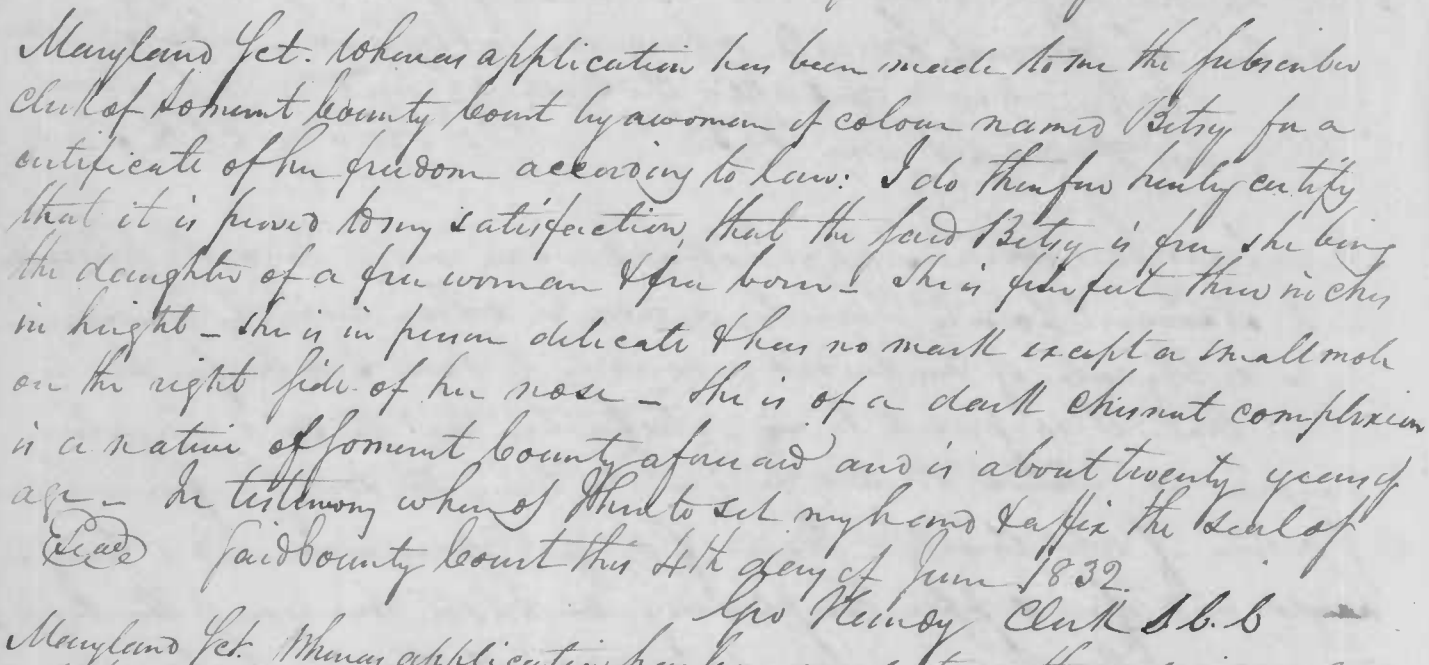 Maryland Sct. Whereas application has been made to me the subscriber
Clerk of Somerset County Court by a woman of colour named Betsy for a
certificate of her freedom according to law: I do therefore hereby certify
that it is proved to my satisfaction, that the said Betsy is free she being
the daughter of a free woman & free born - She is five feet three inches
in height - she is in person delicate & has no mark except a small mole
on the right side of her nose - She is of a dark chesnut complexion
is a native of Somerset County aforesaid and is about twenty years of
age - In testimony whereof I hereto set my hand & affix the seal of
Seal said County Court this 4th day of June 1832.
Geo Handy Clerk S C. C
Maryland Sct. Whereas application has been made to